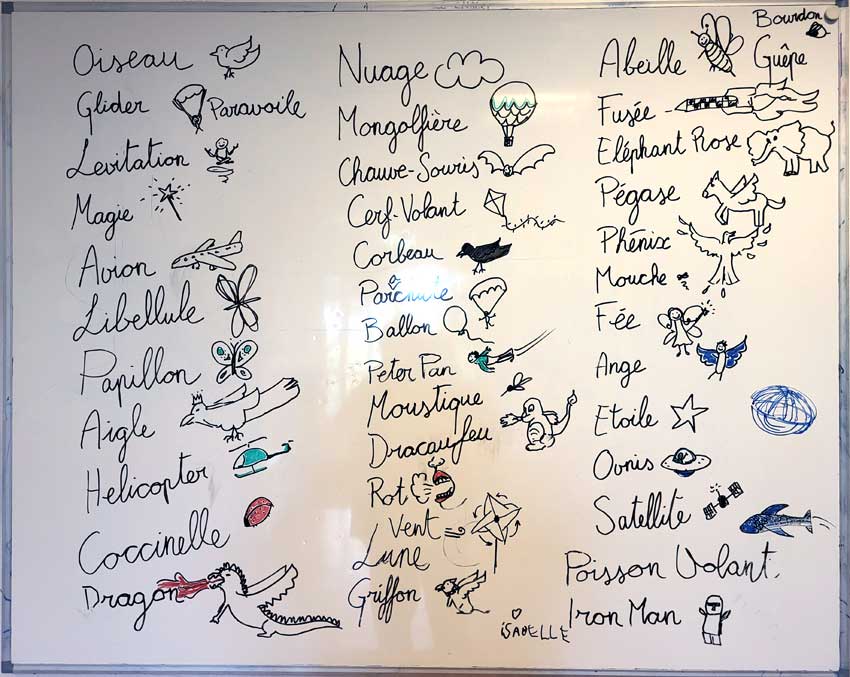 Oiseau
Glider Paravoile
Levitation
Magie
Avion
Libellule
Papillon
Aigle
Helicopter
Coccinelle
Dragon
Nuage
Mongolfière
Chauve-Souris
Cerf-Volant
Corbeau
Parchute
Ballon
Peter Pan
Moustique
Dracaufeu
Rot
Vent
Lune
Griffon
iSABELLE
Bourdon
Abeille Guêpe
Fusée
Eléphant Rose
Pégase
Phénix
Mouche
Fée
Ange
Etoile
Ovnis
Satellite
Poisson Volant.
Iron Man